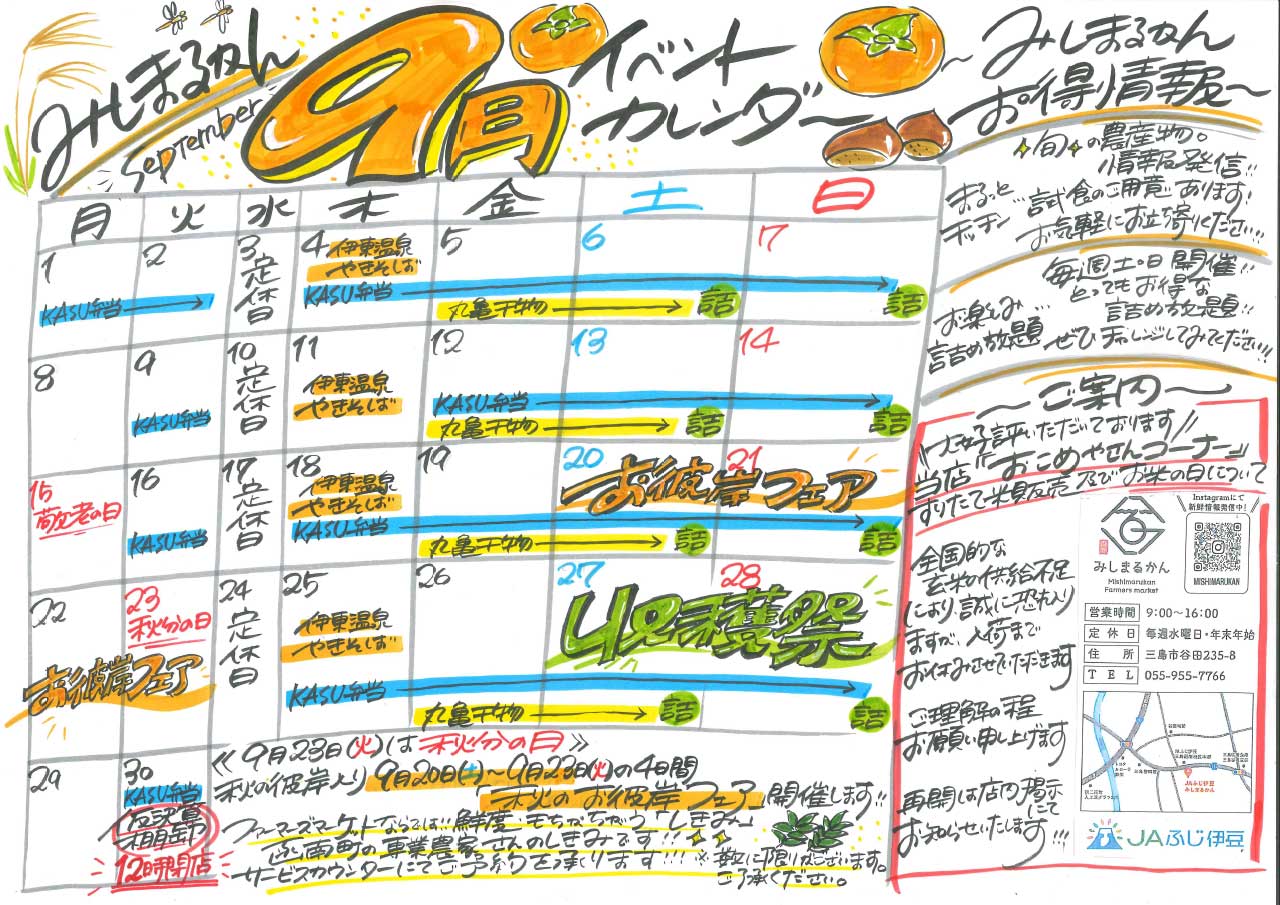 みしまるかん
September
9月
イベント
カレンダー
月 火 水 木 金 土 日
1
KASU弁当
2
3 定休日
4 伊東温泉
やきそば
KASU弁当
5
丸亀干物
6
詰
7
詰
8
9
KASU弁当
10 定休日
11
伊東温泉
やきそば
12
KASU弁当
丸亀干物
13
詰
14
詰
15
敬老の日
16
KASU弁当
17 定休日
18
伊東温泉
やきそば
KASU弁当
19
丸亀干物
20
21
お彼岸フェア
詰
詰
22
23
秋分の日
お彼岸フェア
24 定休日
25
伊東温泉
やきそば
KASU弁当
26
丸亀干物
27
28
収穫祭
詰
詰
29
30
KASU弁当
棚卸
12時閉店
《9月23日(火)は秋分の日》
秋の彼岸入り 9月20日(土)~9月23日(火)の4日間
「秋のお彼岸フェア」開催します!!
ファーマーズマーケットならでは!!鮮度・もちがちがう「しきみ」
函南町の専業農家さんのしきみです!!!
サービスカウンターにてご予約を承ります!!!
※数に限りがございます。
ご了承ください。
~みしまるかん
お得情報~
まるっと
キッチン…
旬の農産物。
情報発信!!
試食のご用意あります!
お気軽にお立ち寄りください!!
お楽しみ…
詰め放題
毎週土・日開催!!
とってもお得な
詰め放題!!
ぜひチャレンジしてみてください!!
~ご案内~
\\大好評いただいております//
当店「おこめやさんコーナー」
すりたて米販売及びお米の日について
全国的な
玄米の供給不足
により、誠に恐れ入り
ますが、入荷まで
お休みさせていただきます
ご理解の程
お願い申し上げます
再開は店内掲示
にて
お知らせいたします!!!
みしまるかん
Mishimarukan
Farmers market
Instagramにて
新鮮情報発信中!
MISHIMARUKAN
営業時間 9:00~16:00
定休日 毎週水曜日・年末年始
住所 三島市谷田235-8
TEL 055-955-7766
JAふじ伊豆
みしまるかん
JAふじ伊豆